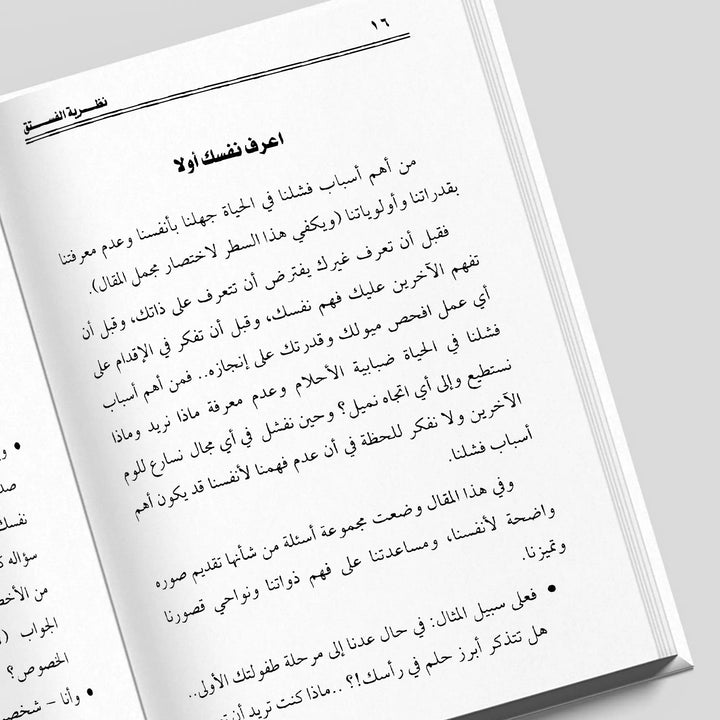 ١٦
نظرية الفستق
اعرف نفسك أولا
من أهم أسباب فشلنا في الحياة جهلنا بأنفسنا وعدم معرفتنا
بقدراتنا وأولوياتنا (ويكفي هذا السطر لاختصار مجمل المقال).
فقبل أن تعرف غيرك يفترض أن تتعرف على ذاتك، وقبل أن
تفهم الآخرين عليك فهم نفسك، وقبل أن تفكر في الإقدام على
أي عمل افحص ميولك وقدرتك على إنجازه.. فمن أهم أسباب
فشلنا في الحياة ضبابية الأحلام وعدم معرفة ماذا نريد وماذا
نستطيع وإلى أي اتجاه نميل؟ وحين نفشل في أي مجال نسارع للوم
الآخرين ولا نفكر للحظة في أن عدم فهمنا لأنفسنا قد يكون أهم
أسباب فشلنا.
وفي هذا المقال وضعت مجموعة أسئلة من شأنها تقديم صوره
واضحة لأنفسنا، ومساعدتنا على فهم ذواتنا ونواحي قصورنا
وتميزنا.
• فعلى سبيل المثال: في حال عدنا إلى مرحلة طفولتك الأولى..
هل تتذكر أبرز حلم في رأسك!؟ ..ماذا كنت تريد أن
نفسك
سؤاله
من
الجواب
الخصوص؟
• وأنا –